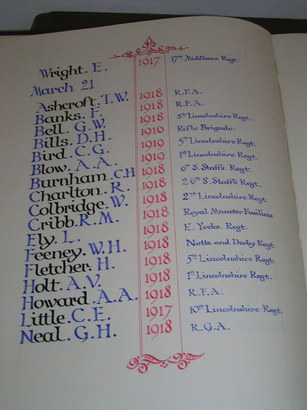 Wright. E. 1917 17th Middlesex Regt.
March 21
Ashcroft. T.W. 1918 R.F.A.
Banks. F. 1918 R.F.A.
Bell. G.W. 1918 5th Lincolnshire Regt.
Bills. D.H. Rifle Brigade.
Bird. C.G. 1919 5th Lincolnshire Regt.
Blow. A.A. 1919 1st Lincolnshire Regt.
Burnham. C.H 1918 6th S. Staffs. Regt.
Charlton. R. 1918 2/6th S. Staffs Regt.
Colbridge. W. 1918 2nd Lincolnshire Regt.
Cribb. R.M. 1918 Royal Munster Fusiliers
Ely. L. 1918 E. Yorks. Regt.
Feeney. W.H. 1918 Notts and Derby Regt
Fletcher. H. 1918 5th Lincolnshire Regt.
Holt. A.V. 1918 1st Lincolnshire Regt.
Howard. A.A. 1918 R.F.A.
Little. C.E. 1917 10th Lincolnshire Regt.
Neal. G.H. 1918 R.G.A.